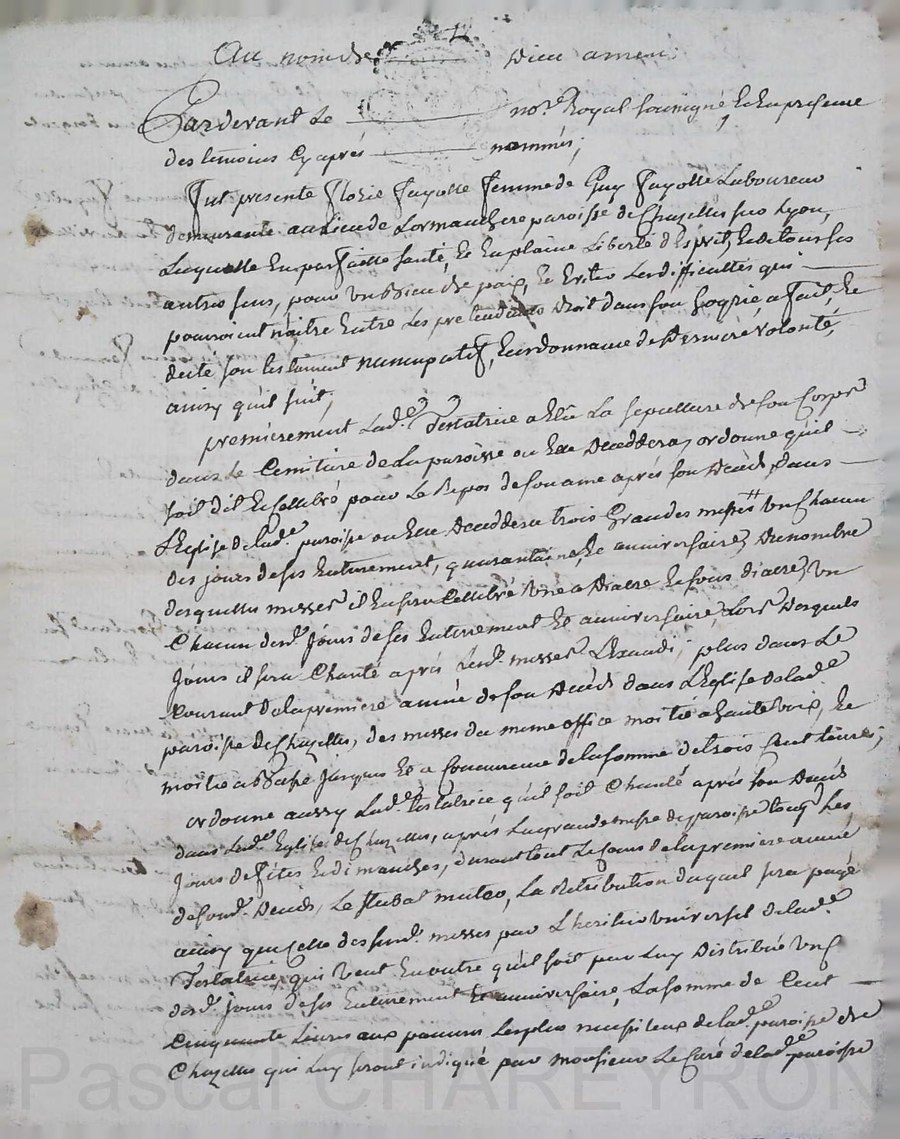 Au nom de Dieu amen
Pardevant Le no.re Royal soussigné, Et En presence
des temoins Cy aprés nommés,
Fut presente Florie Fayolle femme de Guy Fayolle Laboureur
demeurante au Lieu de Lormanchere paroisse de Chazelles sur Lyon,
Laquelle En parfaitte santé, Et En plaine Liberté d'Esprit, Et de tous ses
autres sens, pour un bien de paix, Et Eviter Les difficultés qui
pouroient naitre Entre Les pretendants Droit dans son hoyrie, a fait, Et
dicté son testament nunncupatif, Et ordonnance de Derniere volonté,
ainsy qu'il suit,
premierement Lad.e Testatrice a Elû La sepulture de son Corps
dans Le Cemitiere de La paroisse ou Elle Deceddera, ordonne qu'il
soit dit Et Cellebré pour Le Repos de son ame aprés son Decéds, dans
L'Eglise de Lad.e paroisse ou Elle Deceddera trois Grandes messes un Chacun
des jours de ses Enterrement, quarantaine, Et anniversaire, Du nombre
desquelles messes il En sera Cellebré une a Diacre Et sous diacre, un
Chacun desd. jours de ses Enterrement Et anniversaire, Lors Desquels
jours il sera Chanté aprés Lesd. messes L'Exaudi, plus dans Le
Courant de La premiere année de son Decéds dans L'Eglise de Lad.e
paroisse de Chazelles, des messes du meme office moitié a haute voix, Et
moitié a Basse jusques Et a Concurence de La somme de trois Cent Livres;
ordonne aussy Lad.e testatrice qu'il soit Chanté aprés son Decéds
dans Lad. Eglise de Chazelles, aprés La grande messe de paroisse tous Les
jours de fétes Et dimanches, durant tout Le Cours de La premiere année
de sond. Decéds, Le stabat mater, La Retribution duquel sera payé
ainsy que Celle des susd. messes par L'heritier universel de Lad.e
Testatrice, qui veut En outre qu'il soit par Luy Distribué un
desd. jours de ses Enterrement Et anniversaire, La somme de Cent
Cinquante Livres aux pauvres Les plus necessiteux de Lad.e paroisse de
Chazelles qui Luy seront indiqué par monsieur Le Curé de Lad.e paroisse
Pascal CHAREYRON